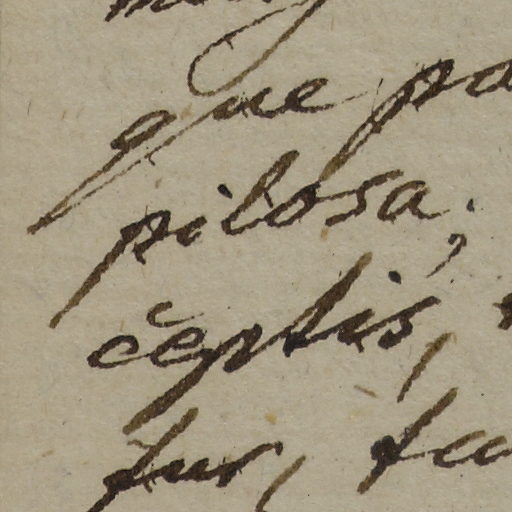 que pa
pilosa;
ceptis,
tur, tu